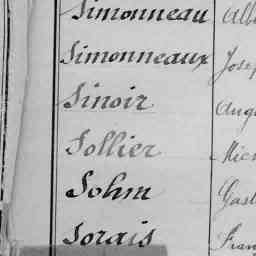 Simonneau Alb
Simonneaux Josep
Sinoir Aug
Sollier Mich
Sohm Gast
Sorais Fran